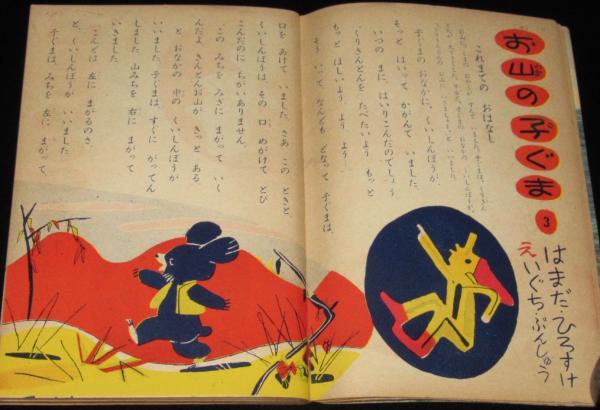 お山の子ぐま
3
はまだ・ひろすけ
え いぐち・ぶんしゅう
これまでの おはなし
子ぐまの おなかに、くいしんぼうが、
そっと はいって かがんで いました。
いつの まに はいりこんだのでしょう
くりきんとんを たべたいよう もっと
もっと ほしいよう、よう よう
そう いって なんども どなって 子ぐまは、
口を あけて いました。さあ この ときと
くいしんぼうは その 口 めがけて とび
こんだのに ちがいありません。
この みちを みぎに まがって いく
んだよ きんとんお山が きっと ある
と、おなかの 中の くいしんぼうが
いいました。子ぐまは、すぐに がってん
しました 山みちを 右に まがって
いきました。
こんどは 左に まがるのさ。
と、くいしんぼうが いいました
子ぐまは、みちを 左に まがって、